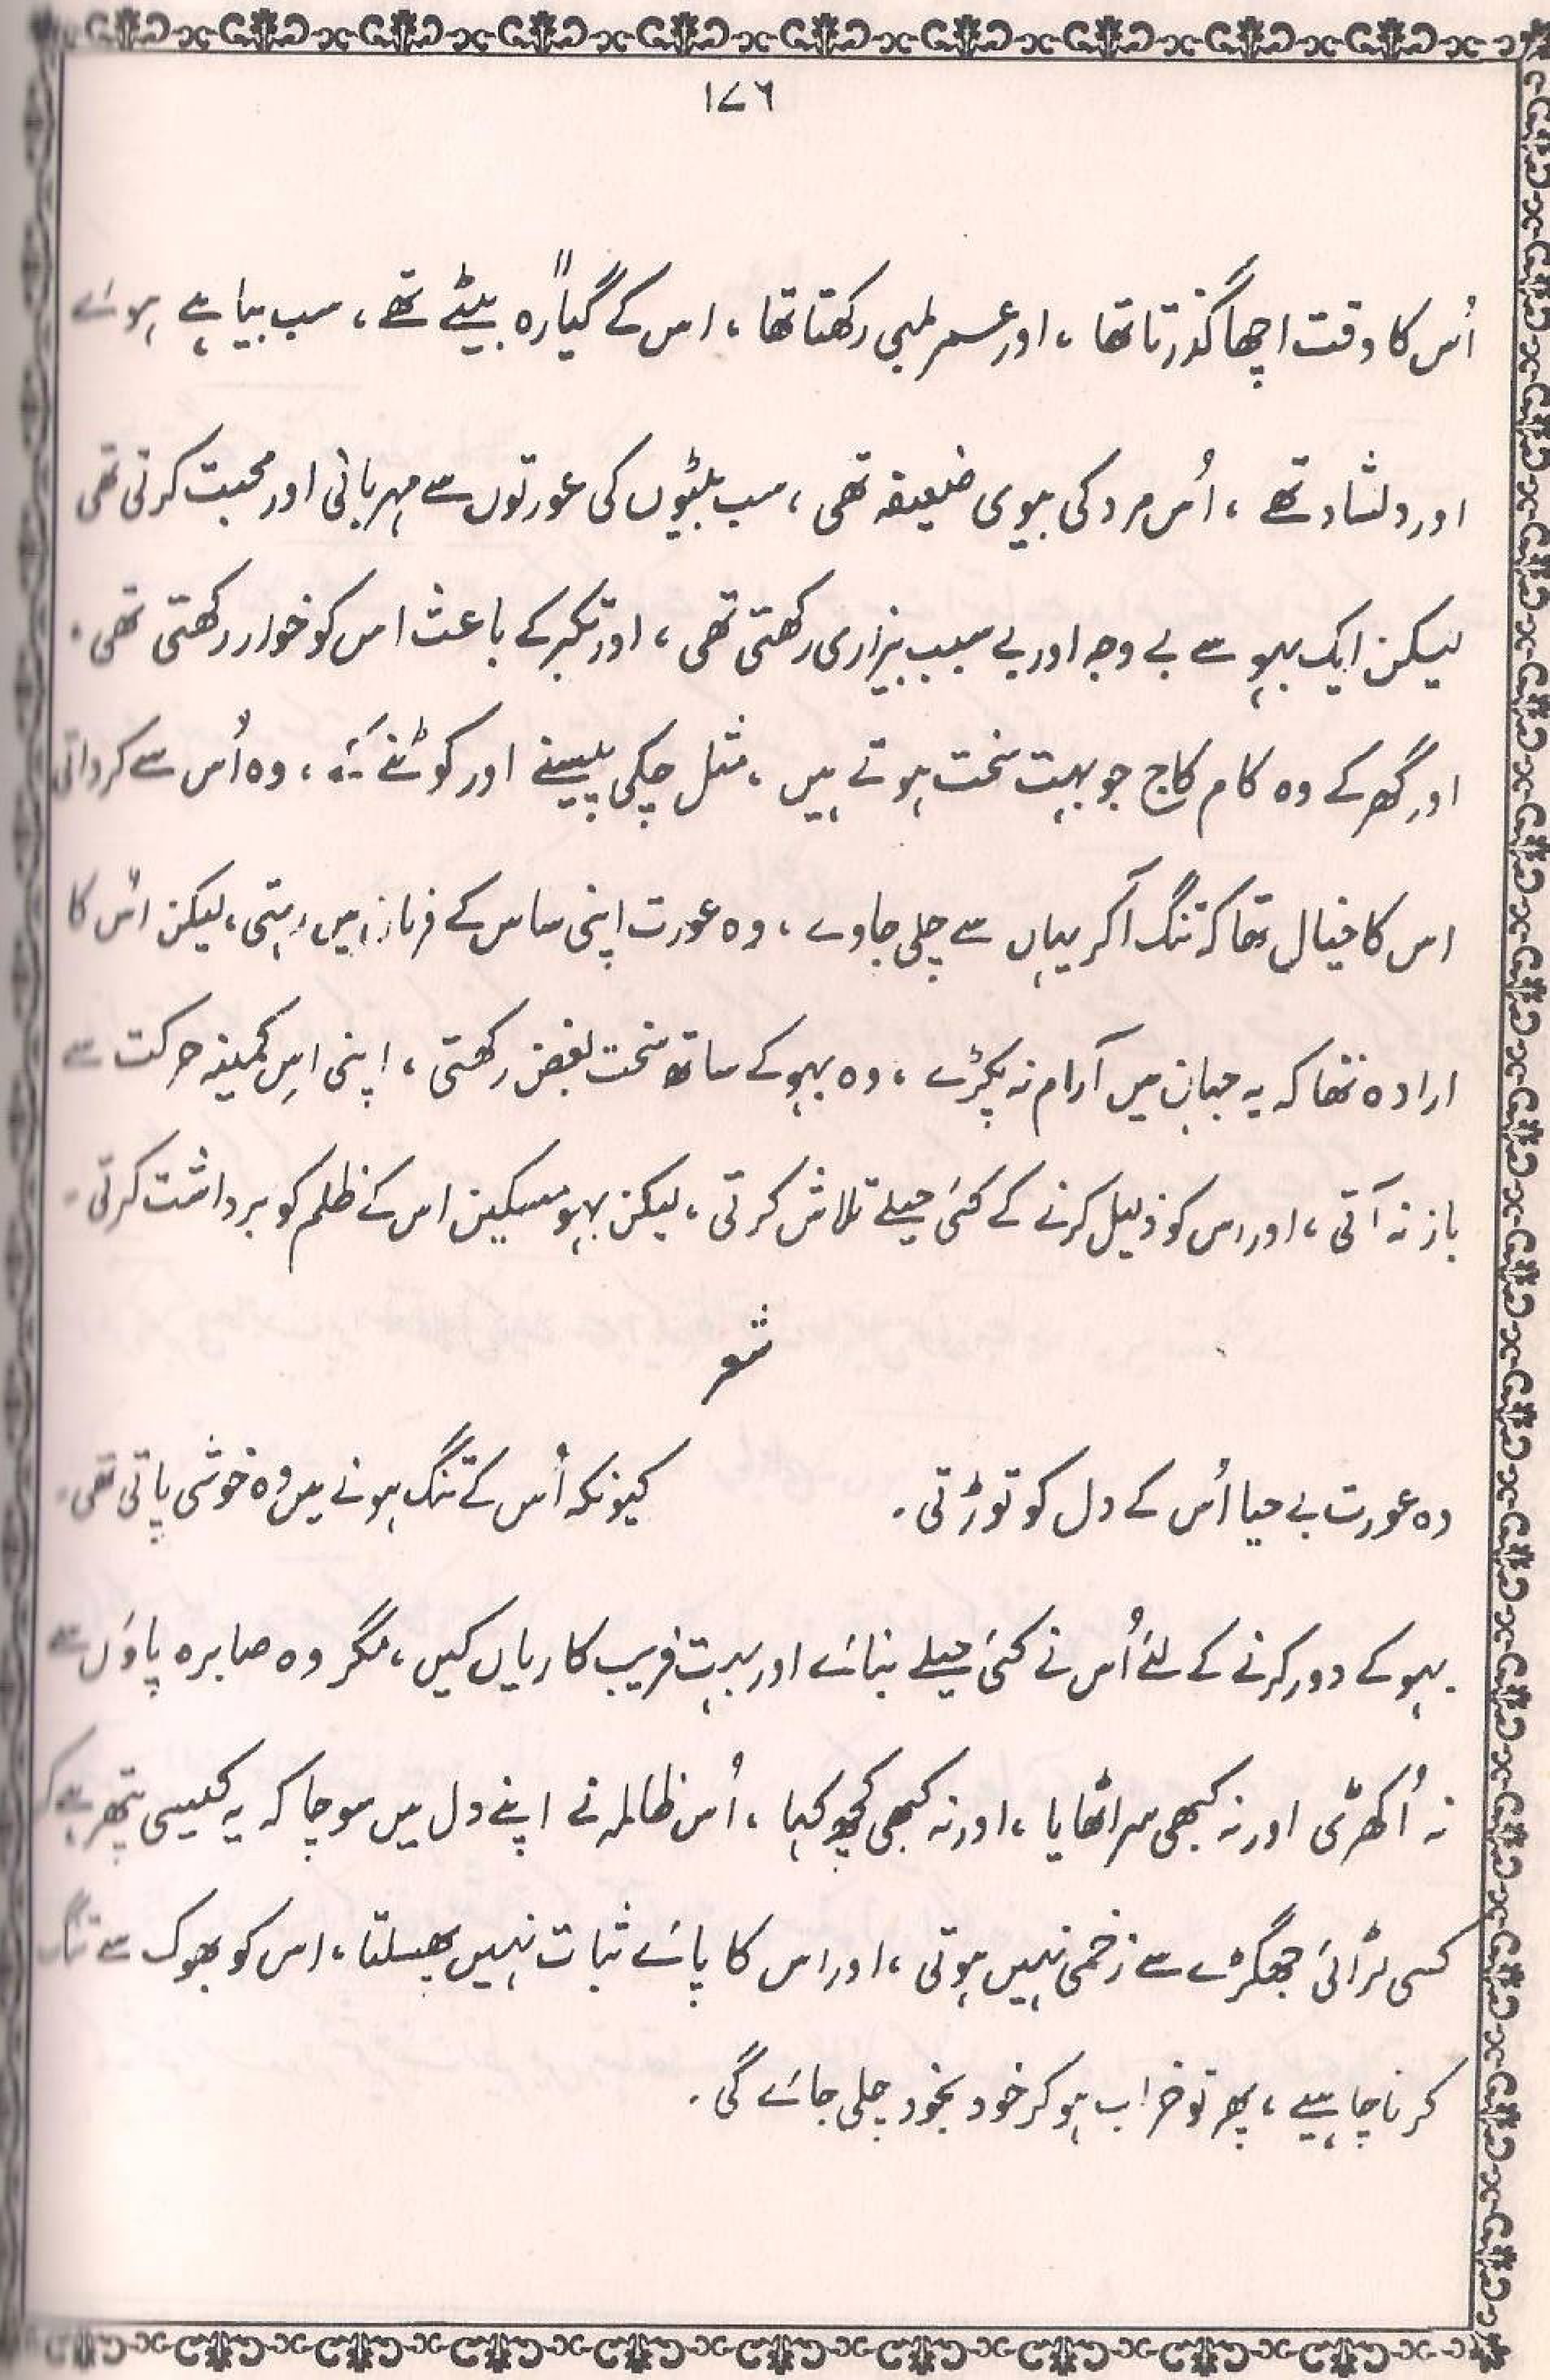 ۱۷۶
اُس کا وقت اچھا گذرتا تھا ، اور عمر لمبی رکھتا تھا ، اس کے گیارہ بیٹے تھے ، سب بیاہے ہوئے
اور دلشاد تھے ، اُس مرد کی بیوی ضعیفہ تھی ، سب بیٹیوں کی عورتوں سے مہربانی اور محبت کرتی تھی
لیکن ایک بہو سے بے وجہ اور بے سبب بیزاری رکھتی تھی ، اور تکبر کے باعث اس کو خوار رکھتی تھی ۔
اور گھر کے وہ کام کاج جو بہت سخت ہوتے ہیں ، مثل چکی پیسنے اور کوٹنے کے ، وہ اُس سے کرواتی
اس کا خیال تھا کہ تنگ آکر یہاں سے چلی جاوے ، وہ عورت اپنی ساس کے فرمان میں رہتی ، لیکن اُس کا
ارادہ تھا کہ یہ جہان میں آرام نہ پکڑے ، وہ بہو کے ساتھ سخت بغض رکھتی ، اپنی اِس کمینہ حرکت سے
باز نہ آتی ، اور اس کو ذلیل کرنے کے کئی حیلے تلاش کرتی ، لیکن بہو مسکین اس کے ظلم کو برداشت کرتی ۔
شعر
وہ عورت بے حیا اُس کے دل کو توڑتی ۔ کیونکہ اُس کے تنگ ہونے میں وہ خوشی پاتی تھی ۔
بہو کے دور کرنے کے لئے اُس نے کئی حیلے بنائے اور بہت فریب کاریاں کیں ، مگر وہ صابرہ پاؤں سے
نہ اُکھڑی اور نہ کبھی سر اٹھایا ، اور نہ کبھی کچھ کہا ، اُس ظالمہ نے اپنے دل میں سوچا کہ یہ کیسی پتھر ہے کہ
کسی لڑائی جھگڑے سے زخمی نہیں ہوتی ، اور اس کا پائے ثبات نہیں پھسلتا ، اس کو بھوک سے تنگ
کرنا چاہیے ، پھر تو خراب ہو کر خود بخود چلی جائے گی ۔